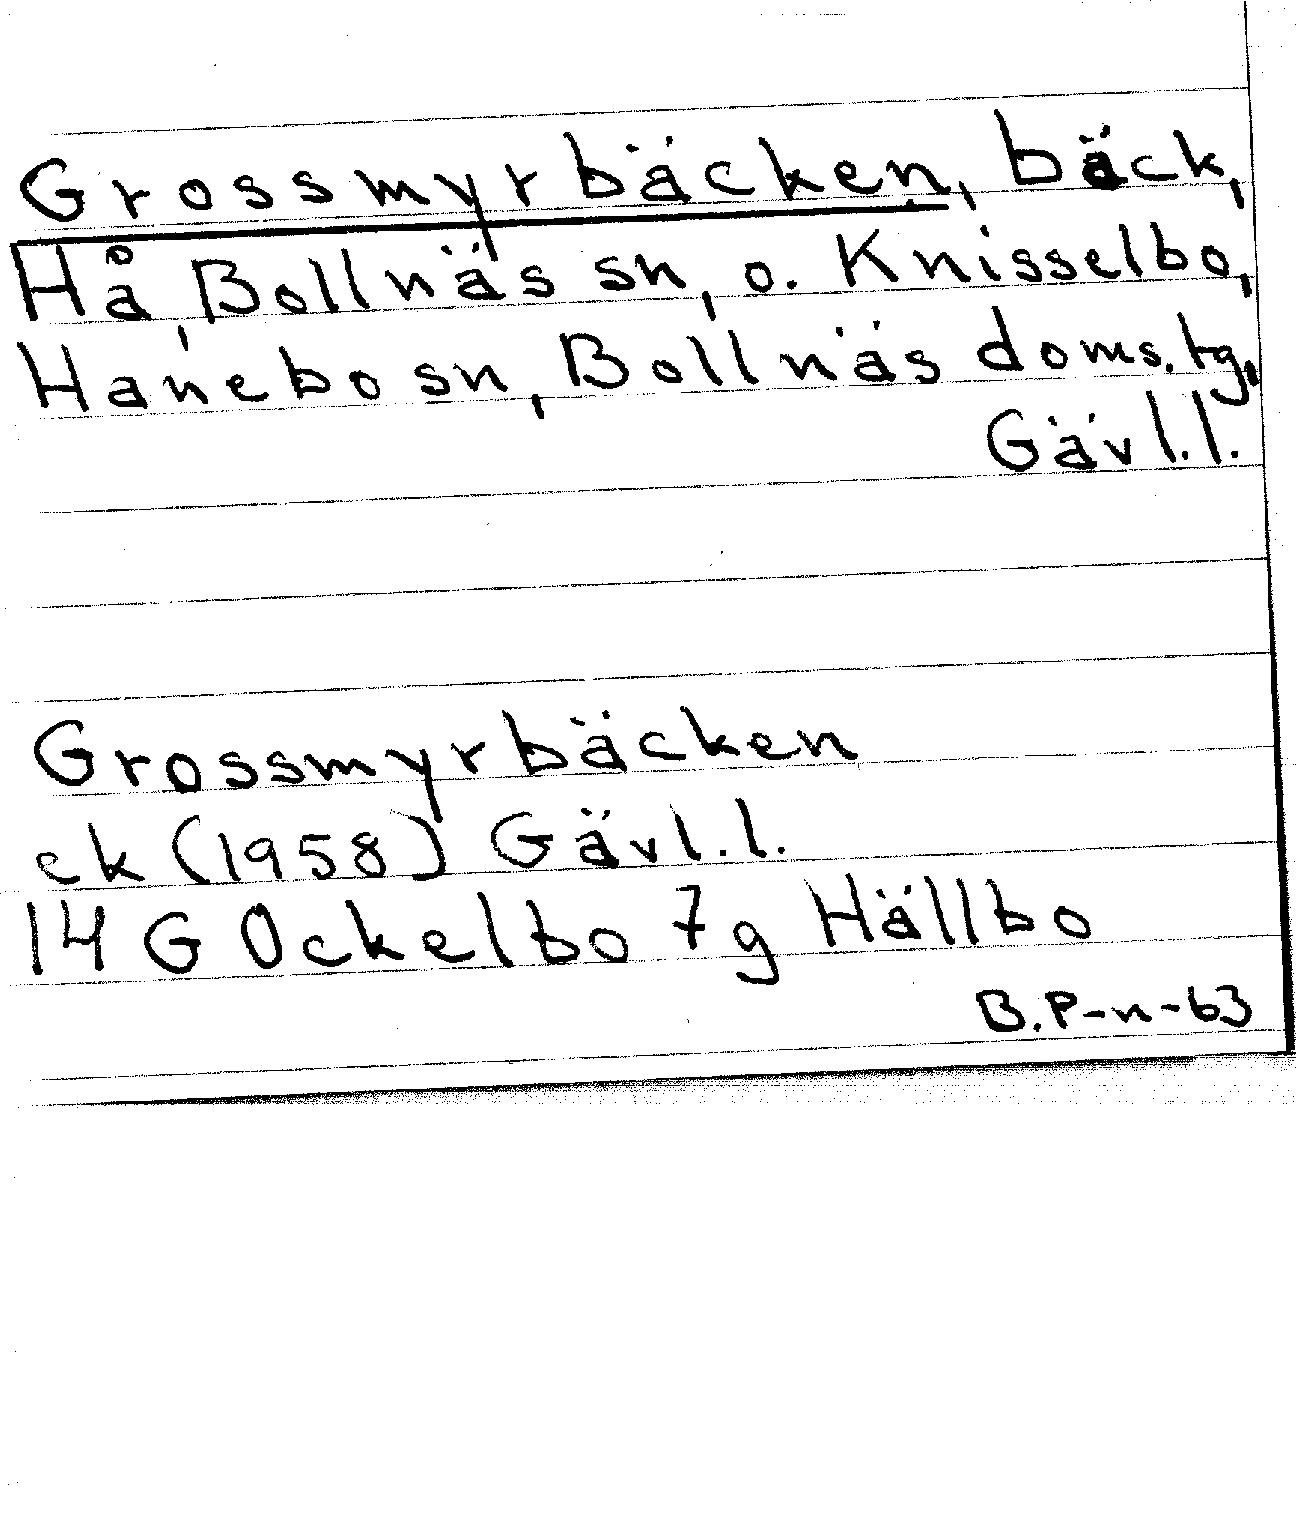 Grossmyrbäcken, bäck,
Hå, Bollnäs sn, o. Knisselbo,
Hanebo sn, Bollnäs doms. tg,
Gävl.l.
Grossmyrbäcken
ek (1958) Gävl.l.
14 G Ockelbo 7g Hällbo
B.P-n-63